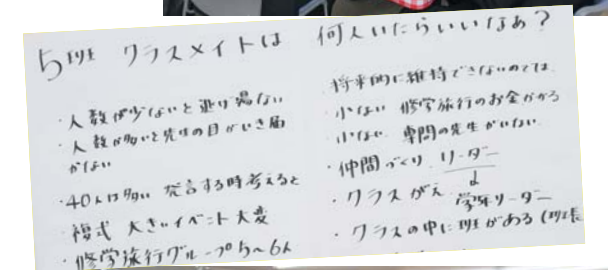 5班 クラスメイトは 何人いたらいいなぁ？
・人数が少ないと逃げ場ない
・人数が多いと先生の目がいき届
かない
・40人は多い 発言する時考えると
・複式 大きいイベント大変
・修学旅行グループ5〜6人
将来的に維持できないのでは
少ない 修学旅行のお金がかかる
少ない 専門の先生がいない
・仲間づくり リーダー
↓
・クラスがえ 学年リーダー
・クラスの中に班がある（班長